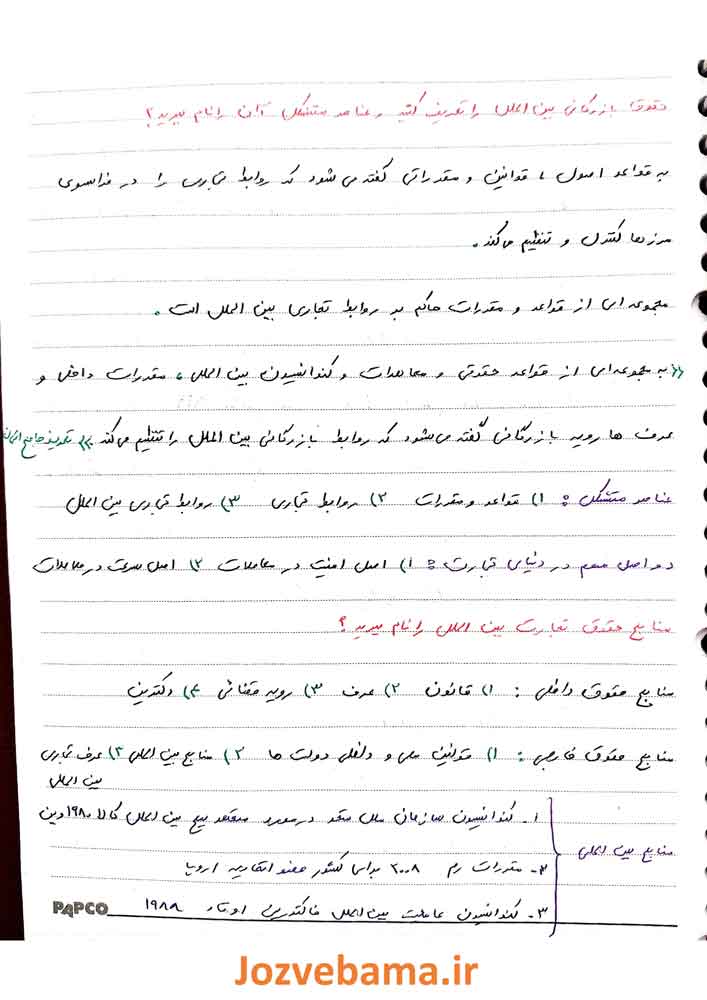 حقوق بازرگانی بین الملل را تعریف کنید و عناصر متشکل آن را نام ببرید؟
به قواعد اصول، قوانین و مقرراتی گفته می شود که روابط تجاری را در فراسوی
مرزها کنترل و تنظیم می کند.
مجموعه ای از قواعد و مقررات حاکم بر روابط تجاری بین الملل است.
«به مجموعه ای از قواعد حقوقی و معاهدات و کنوانسیون بین المللی، مقررات داخلی و
عرف ها رویه بازرگانی گفته می شود که روابط بازرگانی بین الملل را تنظیم می کند.» تعریف جامع
عناصر متشکل: ۱) قواعد و مقررات ۲) روابط تجاری ۳) روابط تجاری بین الملل
دو اصل مهم در دنیای تجارت: ۱) اصل امنیت در معاملات ۲) اصل سرعت در معاملات
منابع حقوق تجارت بین الملل را نام ببرید؟
منابع حقوق داخلی: ۱) قانون ۲) عرف ۳) رویه قضائی ۴) دکترین
منابع حقوق خارجی: ۱) قوانین ملی و داخلی دولت ها ۲) منابع بین المللی ۳) عرف تجاری
بین الملل
منابع بین المللی
۱- کنوانسیون سازمان ملل متحد در مورد منعقد بیع بین الملل کالا ۱۹۸۰ وین
۲- مقررات رم ۲۰۰۸ برای کشور عضو اتحادیه اروپا
۳- کنوانسیون عاملیت بین الملل فاکتورینگ اوتاوا ۱۹۸۸
PAPCO
Jozvebama.ir